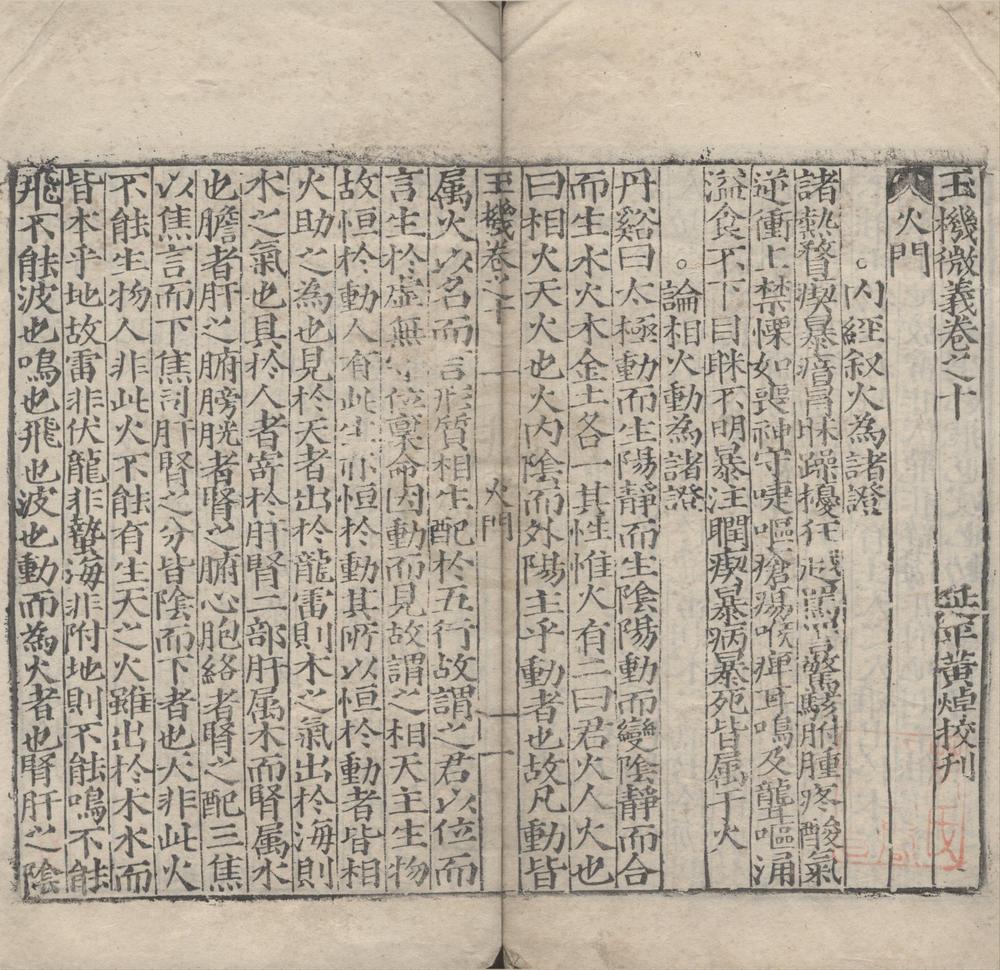 玉機微義卷之十　延平黄焯校刋
火門
○内經叙火為諸證
諸熱瞀瘈暴瘖冐昧躁擾狂越罵詈驚駭胕腫疼酸氣
逆衝上禁慄如喪神守嚏嘔瘡瘍喉痺耳鳴及聾嘔涌
溢食不下目昧不明暴注瞤瘈暴病暴死皆属于火
○論相火動為諸證
丹谿曰太極動而生陽靜而生陰陽動而變陰靜而合
而生水火木金土各一其性惟火有二曰君火人火也
曰相火天火也火内陰而外陽主乎動者也故凡動皆
玉機卷之十　火門　一
属火以名而言形質相生配於五行故謂之君以位而
言生於虚無守位稟命因動而見故謂之相天主生物
故恒於動人有此生亦恒於動其所以恒於動者皆相
火助之為也見於天者出於龍雷則木之氣出於海則
水之氣也具於人者寄於肝腎二部肝属木而腎属水
也膽者肝之腑膀胱者腎之腑心胞絡者腎之配三焦
以焦言而下焦司肝腎之分皆陰而下者也天非此火
不能生物人非此火不能有生天之火雖出於木水而
皆本乎地故雷非伏龍非蟄海非附地則不能鳴不能
飛不能波也鳴也飛也波也動而為火者也腎肝之陰